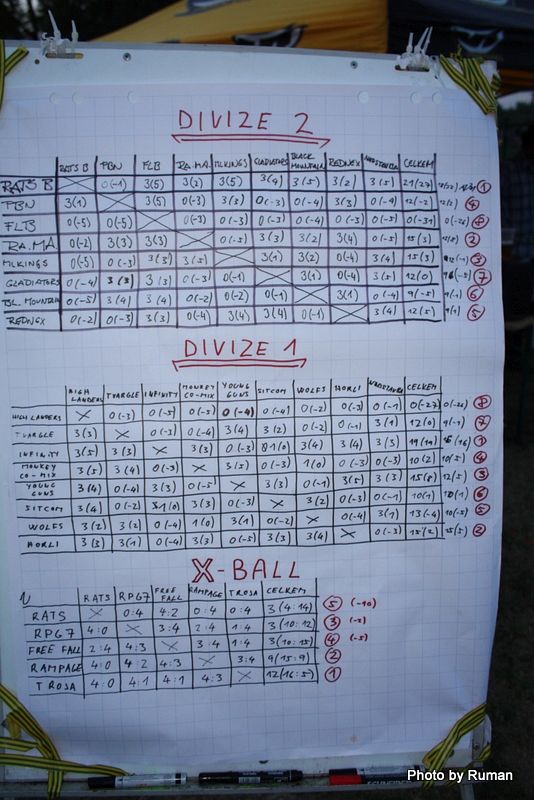 DIVIZE 2
RATS B TBN FLB RA.MA MLKINGS GLADIATORS BLACK MOUNTAIN REDNEX CELKEM
RATS B 0(-1) 3(5) 3(2) 3(5) 3(4) 3(5) 3(2) 3(5) 21(27) 1
TBN 3(1) 3(5) 0(-3) 3(3) 0(-3) 0(-4) 3(3) 0(-4) 12(-2) 4
FLB 0(-5) 0(-5) 0(-3) 0(-3) 0(-3) 0(-4) 0(-3) 0(-5) 0(-31) 8
RA.MA 0(-2) 3(3) 3(3) 0(-5) 3(3) 3(2) 3(4) 0(-5) 15(3) 2
MLKINGS 0(-5) 0(-3) 3(3) 3(5) 3(1) 3(2) 0(-4) 3(4) 15(3) 3
GLADIATORS 0(-4) 3(3) 3(3) 0(-3) 0(-1) 3(1) 0(-4) 3(5) 12(0) 7
BL. MOUNTAIN 0(-5) 3(4) 3(4) 0(-2) 0(-2) 0(-1) 3(1) 0(-4) 9(-5) 6
REDNEX 0(-2) 0(-3) 3(3) 0(-4) 3(4) 3(4) 0(-1) 3(4) 12(5) 5
DIVIZE 1
HIGH LANDERS TVARGLE INFINITY MONKEY CO-MIX YOUNG GUNS SITCOM WOLFS HORLI CELKEM
HIGH LANDERS 0(-3) 0(-5) 0(-5) 0(-4) 0(-4) 0(-2) 0(-3) 0(-1) 0(-27) 8
TVARGLE 3(3) 0(-3) 0(-4) 3(4) 3(2) 0(-2) 0(-1) 3(1) 12(0) 7
INFINITY 3(5) 3(3) 3(3) 0(-3) 1(0) 3(4) 3(4) 3(3) 19(19) 1
MONKEY CO-MIX 3(5) 3(4) 0(-3) 3(5) 0(-3) 1(0) 0(-3) 0(-3) 10(2) 4
YOUNG GUNS 3(4) 0(-4) 3(3) 0(-5) 3(3) 0(-1) 3(5) 3(3) 15(8) 3
SITCOM 3(4) 0(-2) 1(0) 3(3) 0(-3) 3(2) 0(-3) 0(-3) 10(1) 6
WOLFS 3(2) 3(2) 0(-4) 1(0) 3(1) 0(-2) 0(-4) 3(1) 13(-4) 5
HORLI 3(3) 3(1) 0(-4) 3(3) 0(-5) 3(3) 3(4) 0(-3) 2
X-BALL
RATS RPG7 FREE FALL RAMPAGE TROJA CELKEM
RATS 0:4 4:2 0:4 0:4 3(4:14) 5 (-10)
RPG7 4:0 3:4 2:4 1:4 3(10:12) 3 (-2)
FREE FALL 2:4 4:3 3:4 1:4 3(10:15) 4 (-5)
RAMPAGE 4:0 4:2 4:3 3:4 9(15:9) 2
TROJA 4:0 4:1 4:1 4:3 12(16:5) 1
Photo by Ruman